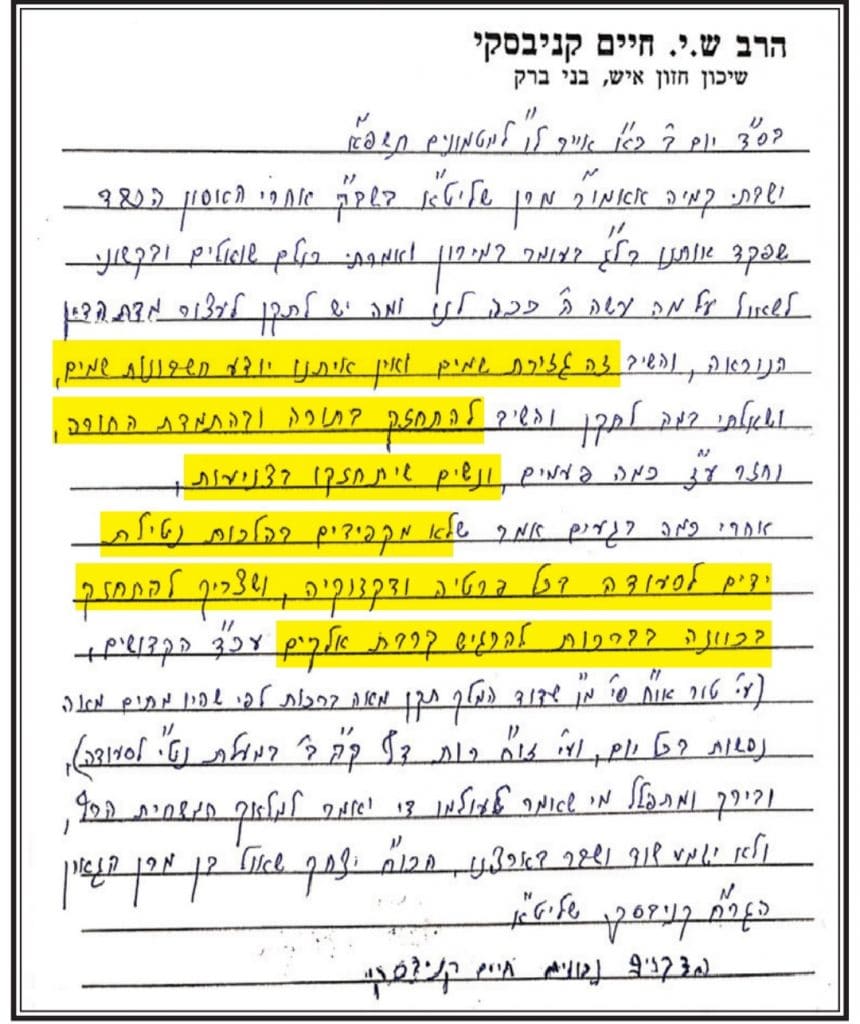 הרב ש.י. חיים קניבסקי
שיכון חזון איש, בני ברק
בס"ד יום ב' כ"א אייר ל"ו למטמונים תשפ"א
ישבתי קמיה אאמו"ר מרן שליט"א בשב"ק אחרי האסון הכבד
שפקד אותנו בל"ג בעומר במירון ואמרתי כולם שואלים ובקשוני
לשאול על מה עשה ה' ככה לנו ומה יש לתקן לעצור מדת הדין
הנוראה, והשיב זה גזירת שמים ואין איתנו יודע חשבונות שמים,
ושאלתי במה לתקן והשיב להתחזק בתורה ובהתמדת התורה,
וחזר ע"ז כמה פעמים, ונשים שיתחזקו בצניעות,
אחרי כמה רגעים אמר שלא מקפידים בהלכות נטילת
ידים לסעודה בכל פרטיה ודקדוקיה, ושצריך להתחזק
בכוונה בברכות להרגיש קרבת אלקים עכ"ד הקדושים,
(עי' טור או"ח סי' מ"ו שדוד המלך תקן מאה ברכות לפי שהיו מתים מאה
נפשות בכל יום, ועי' זו"ח רות דף ק"ק ב' במעלת נט"י לסעודה),
ובירך ומתפלל מי שאמר לעולמו די יאמר למלאך המשחית הרף,
ולא ישמע שוד ושבר בארצנו, הכו"ח יצחק שאול בן מרן הגאון
הגר"ח קניבסקי שליט"א
הדברים נכונים חיים קניבסקי